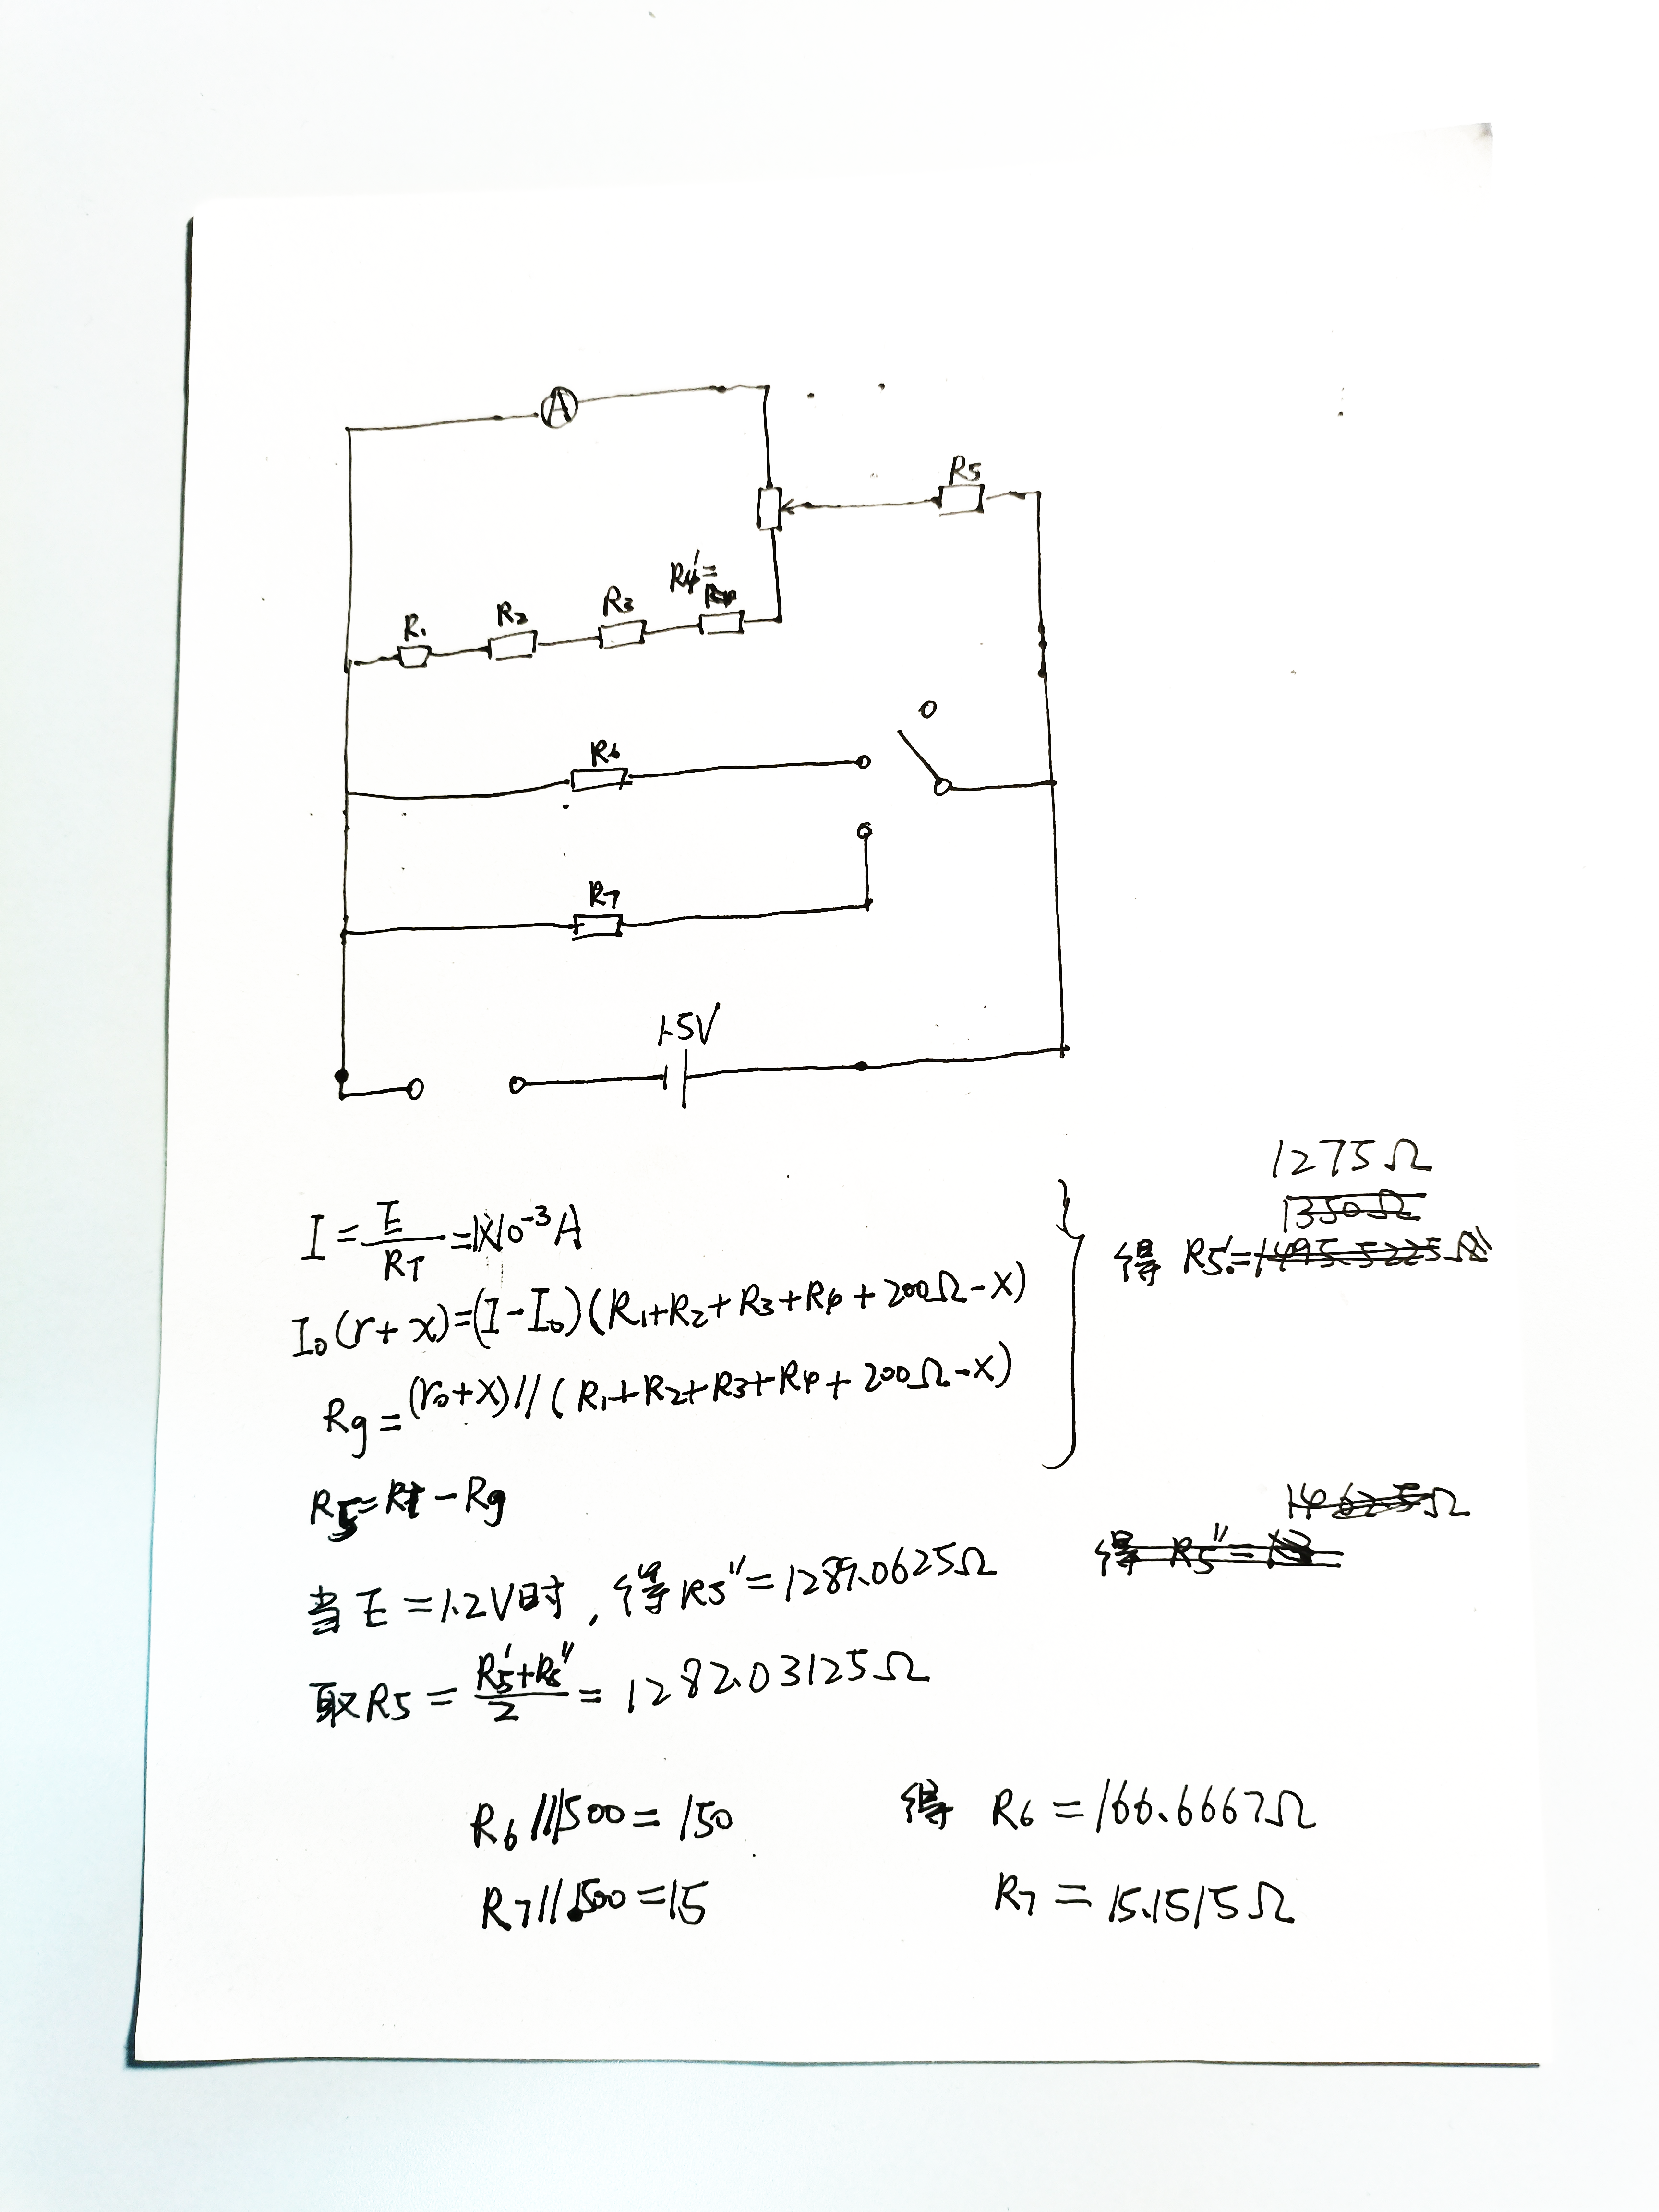 A
R5
R4'=
R1
R2
R3
R6
R7
1.5V
1275Ω
1350Ω
I = E/RT = 1×10⁻³A
得 R5'=1495.5225Ω
I₀(r+x)=(I-I₀)(R1+R2+R3+R4+200Ω-x)
Rg=(r₀+x)//(R1+R2+R3+R4+200Ω-x)
R5=Rt-Rg
1462.5Ω
得 R5''=
当E=1.2V时,得R5''=1289.0625Ω
取R5=(R5'+R5'')/2=1282.03125Ω
R6//1500=150 得 R6=166.6667Ω
R7//1500=15 R7=15.1515Ω